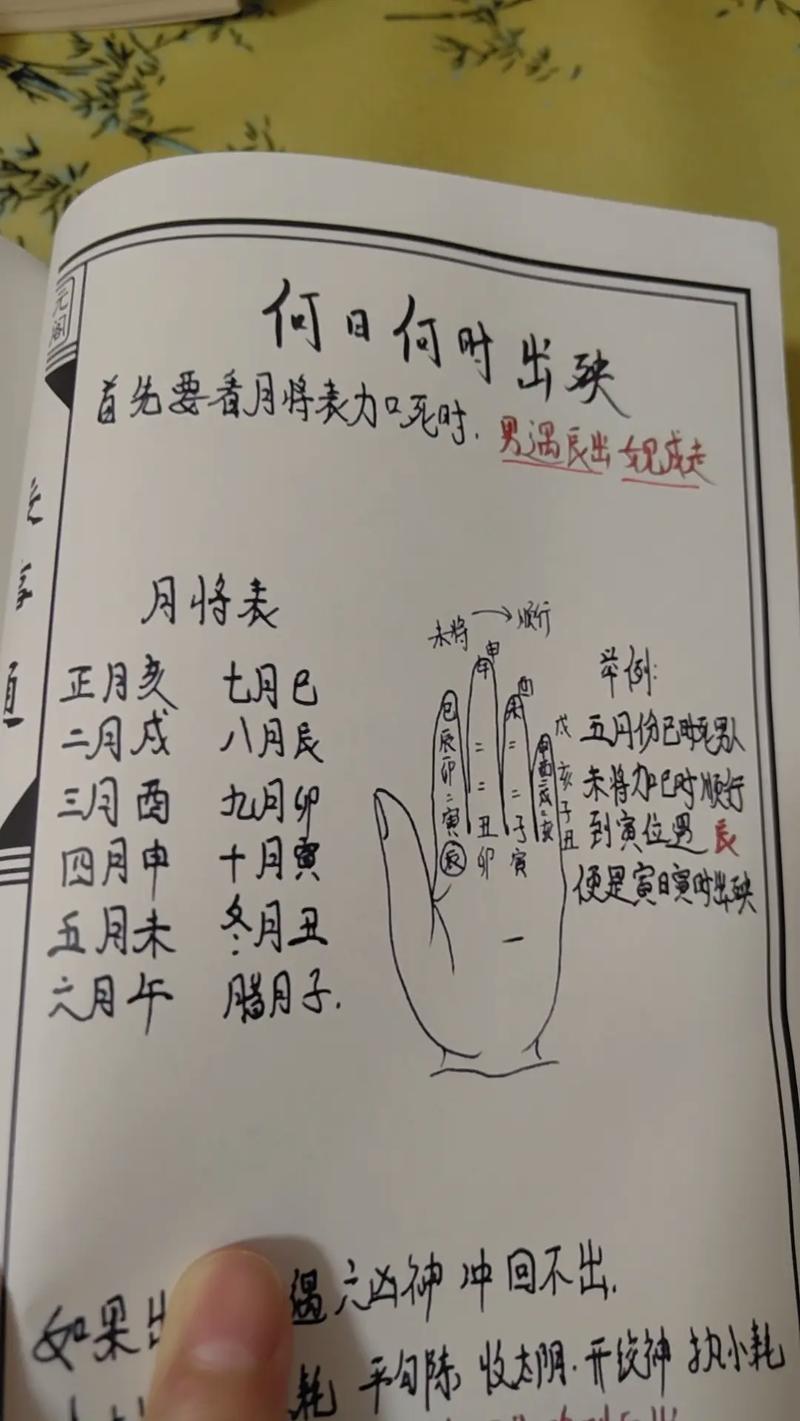 元阁
何日何时出殃
首先要看月将表加死时.
男遇辰出 女见戌走
月将表
正月亥 七月巳
二月戌 八月辰
三月酉 九月卯
四月申 十月寅
五月未 冬月丑
六月午 腊月子.
未将 → 顺行
巳 午 申 未 酉
辰
卯
寅 丑 子
辰 卯 寅
申 酉 戌 亥
戌 亥 子 丑
举例:
五月份巳时死男人
未将加巳时顺行
到寅位遇辰
便是寅日寅时出殃
如果出
遇六凶神冲回不出.
耗 平勾陈 收太阴. 开绞神 执小耗